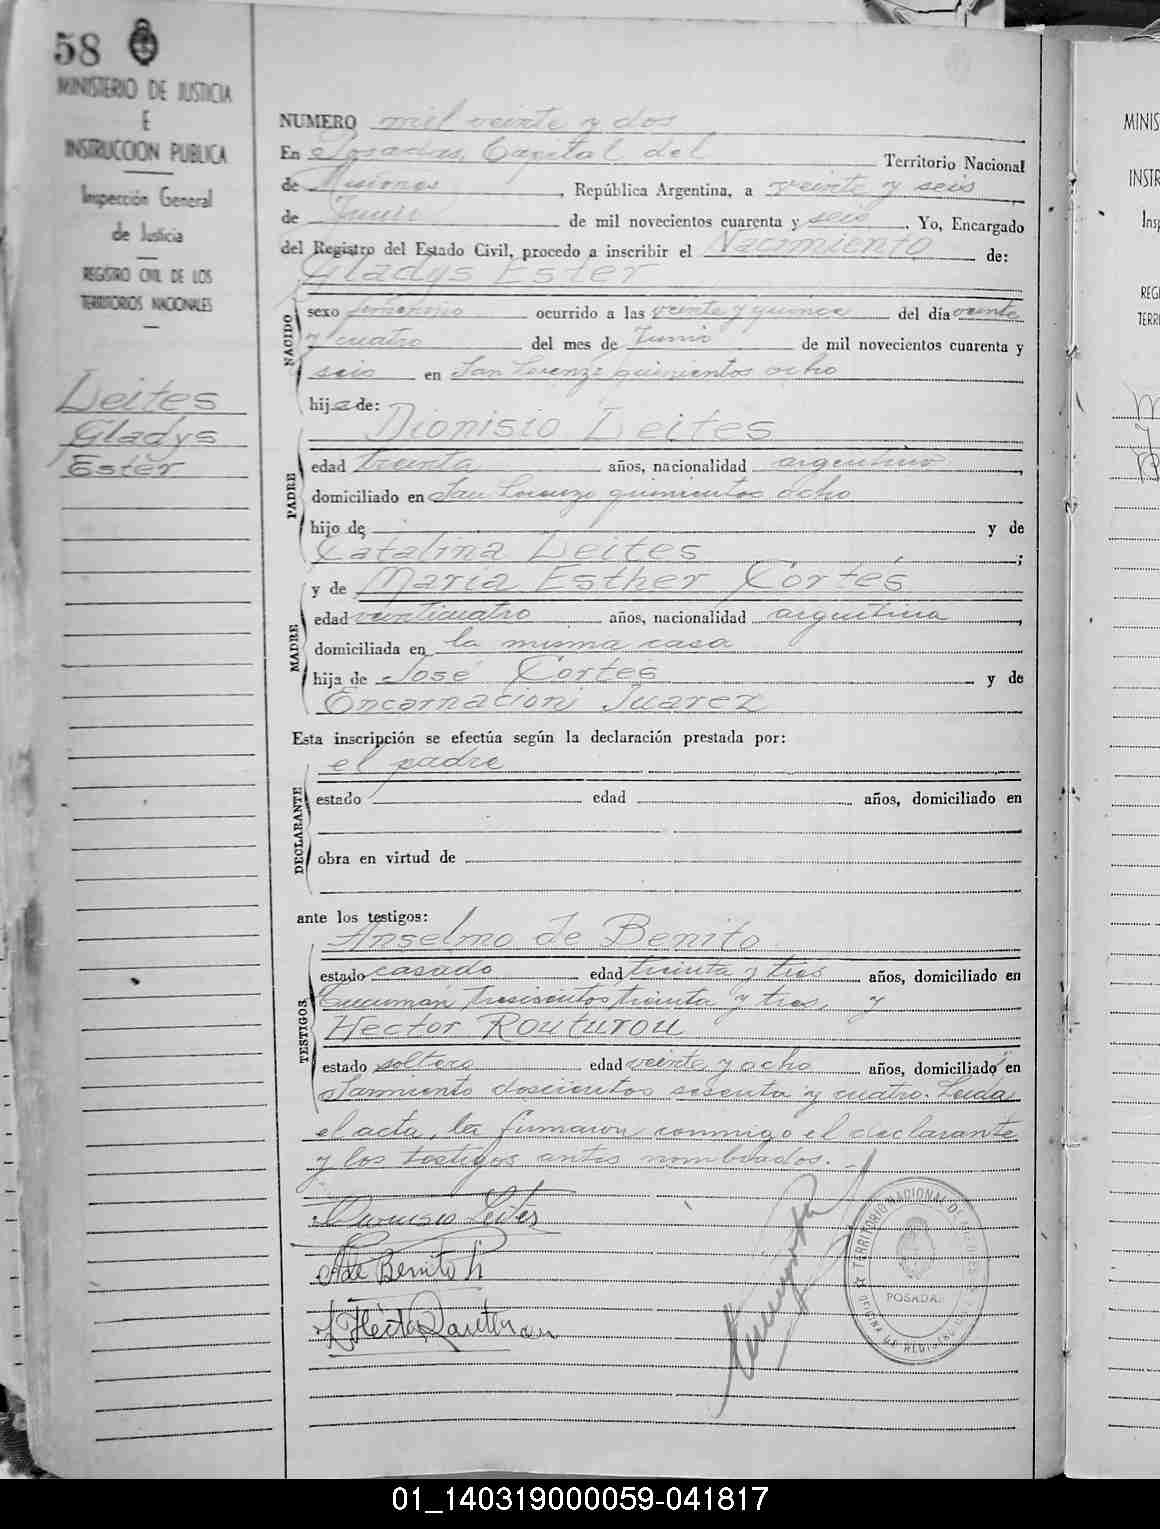 58
MINISTERIO DE JUSTICIA
E
INSTRUCCION PUBLICA
Inspección General
de Justicia
REGISTRO CIVIL DE LOS
TERRITORIOS NACIONALES
Leites
Gladys
Ester
NUMERO mil veinte y dos
En Posadas, Capital del Territorio Nacional
de Misiones, República Argentina, a veinte y seis
de Junio de mil novecientos cuarenta y seis. Yo, Encargado
del Registro del Estado Civil, procedo a inscribir el Nacimiento de:
Gladys Ester
NACIDO
sexo femenino ocurrido a las veinte y quince del día veinte
y cuatro del mes de Junio de mil novecientos cuarenta y
seis en San Lorenzo quinientos ocho
hija de:
Dionisio Leites
PADRE
edad treinta años, nacionalidad argentino
domiciliado en San Lorenzo quinientos ocho
hijo de y de
Catalina Leites;
y de Maria Esther Cortés
MADRE
edad veinticuatro años, nacionalidad argentina
domiciliada en la misma casa
hija de José Cortés y de
Encarnación Juarez
Esta inscripción se efectúa según la declaración prestada por:
el padre
DECLARANTE
estado edad años, domiciliado en
obra en virtud de
ante los testigos:
Anselmo de Benito
TESTIGOS
estado casado edad treinta y tres años, domiciliado en
Tucumán trescientos treinta y tres, y
Hector Routurou
estado soltero edad veinte y ocho años, domiciliado en
Sarmiento doscientos sesenta y cuatro. Leida
el acta, la firmaron conmigo el declarante
y los testigos antes nombrados.
Dionisio Leites
A de Benito
Hector
TERRITORIO NACIONAL DE
POSADAS
MINIS
INSTR
Insp
REGI
TERRI
01_140319000059-041817